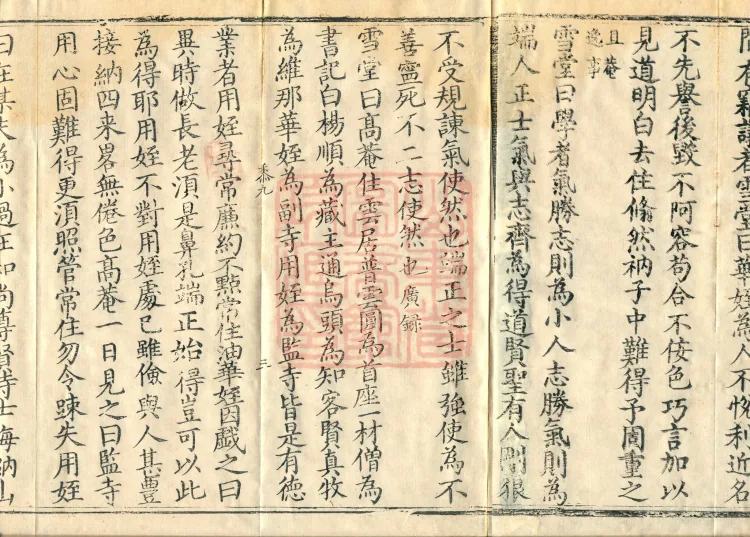 間有竊議者雪堂曰華姪為人不悅利近名
不先譽後毀不阿容苟合不佞色巧言加以
見道明白去住翛然衲子中難得予固重之
且菴
逸事
雪堂曰學者氣勝志則為小人志勝氣則為
端人正士氣與志齊為得道賢聖有人剛狠
不受規諫氣使然也端正之士雖強使為不
善寧死不二志使然也廣録
雪堂曰高菴住雲居普雲圓為首座一材僧為
書記白楊順為藏主通烏頭為知客賢真牧
為維那華姪為副寺用姪為監寺皆是有德
九 三
業者用姪尋常廉約不點常住油華姪因戲之曰
異時做長老須是鼻孔端正始得豈可以此
為得耶用姪不對用姪處已雖儉與人甚豐
接納四来畧無倦色高菴一日見之曰監寺
用心固難得更須照管常住勿令踈失用姪
曰在某失為小過在和尚尊賢待士海納山